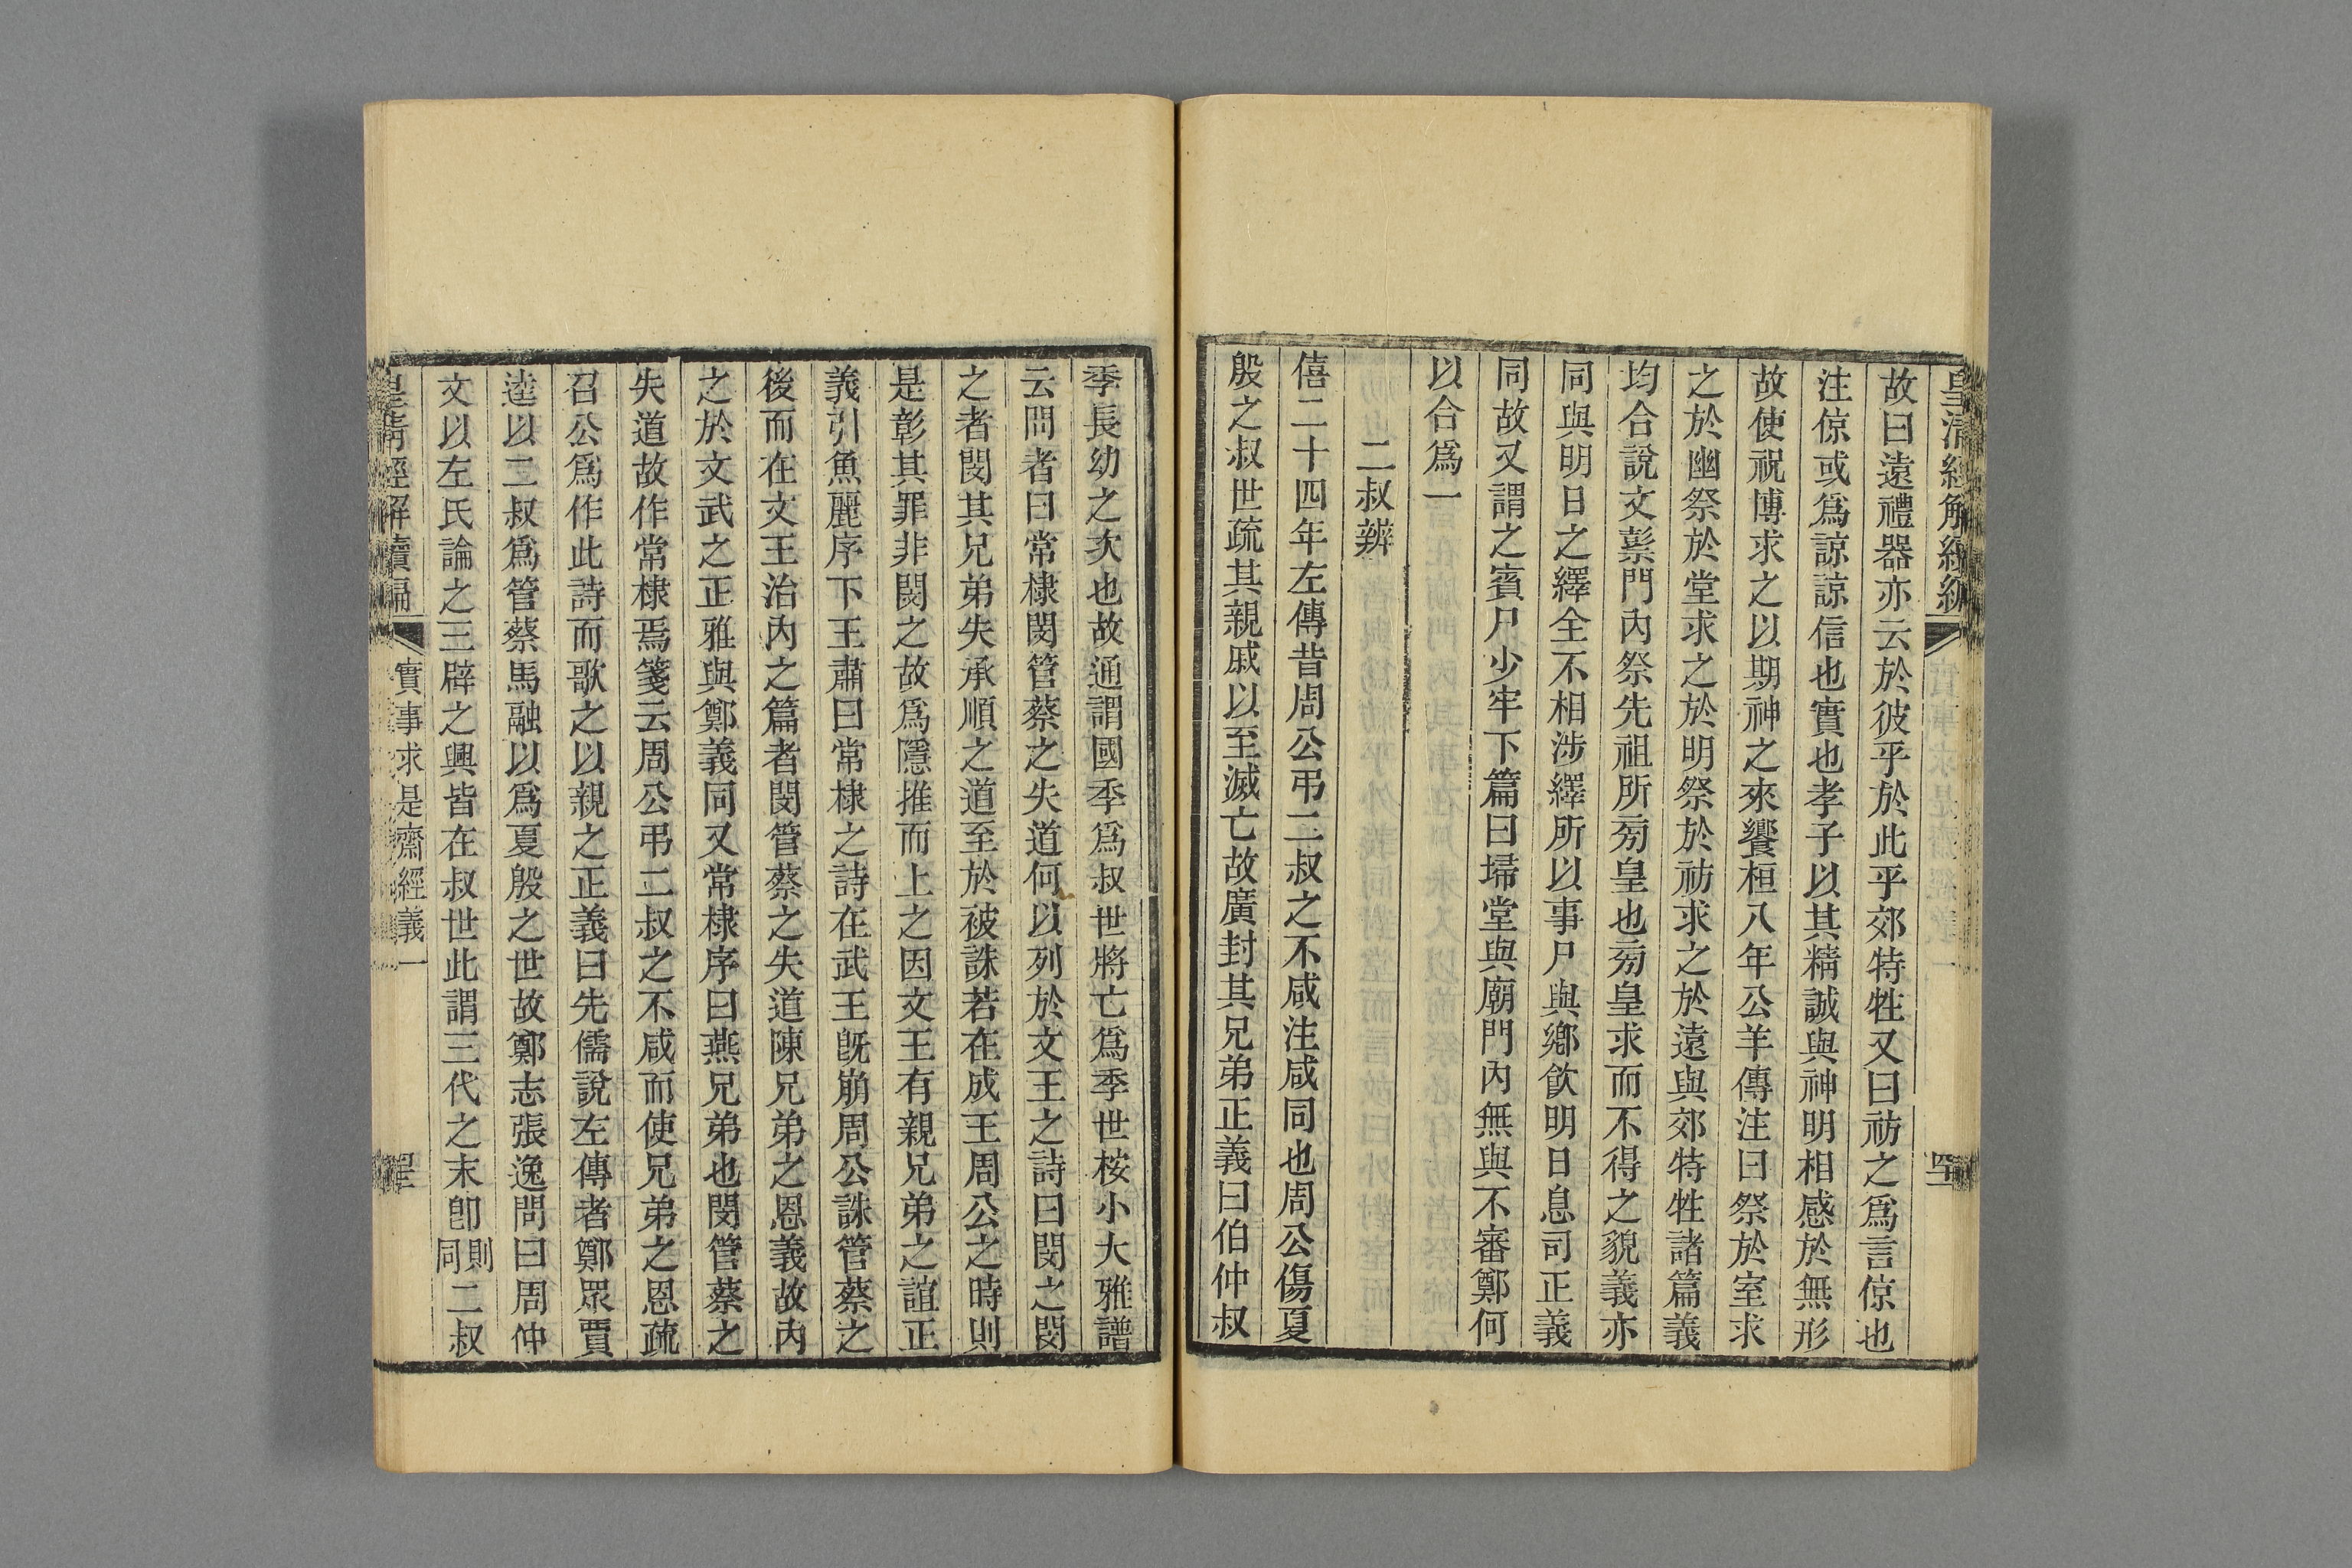 皇清經解續編
故曰遠禮器亦云於彼乎於此乎郊特牲又曰祊之爲言倞也
注倞或爲諒諒信也實也孝子以其精誠與神明相感於無形
故使祝博求之以期神之來饗桓八年公羊傳注曰祭於室求
之於幽祭於堂求之於明祭於祊求之於遠與郊特牲諸篇義
均合說文𥛱門內祭先祖所㫄皇也㫄皇求而不得之貌義亦
同與明日之繹全不相涉繹所以事尸與鄉飲明日息司正義
同故又謂之賓尸少牢下篇曰埽堂與廟門內無與不審鄭何
以合爲一
二叔辨
僖二十四年左傳昔周公弔二叔之不咸注咸同也周公傷夏
殷之叔世疏其親戚以至滅亡故廣封其兄弟正義曰伯仲叔
季長幼之次也故通謂國季爲叔世將亡爲季世桉小大雅譜
云問者曰常棣閔管蔡之失道何以列於文王之詩曰閔之閔
之者閔其兄弟失承順之道至於被誅若在成王周公之時則
是彰其罪非閔之故爲隱推而上之因文王有親兄弟之誼正
義引魚麗序下王肅曰常棣之詩在武王旣崩周公誅管蔡之
後而在文王治內之篇者閔管蔡之失道陳兄弟之恩義故內
之於文武之正雅與鄭義同又常棣序曰燕兄弟也閔管蔡之
失道故作常棣焉箋云周公弔二叔之不咸而使兄弟之恩疏
召公爲作此詩而歌之以親之正義曰先儒說左傳者鄭眾賈
逵以二叔爲管蔡馬融以爲夏殷之世故鄭志張逸問曰周仲
文以左氏論之三辟之興皆在叔世此謂三代之末卽則同二叔
皇清經解續編 實事求是齋經義一